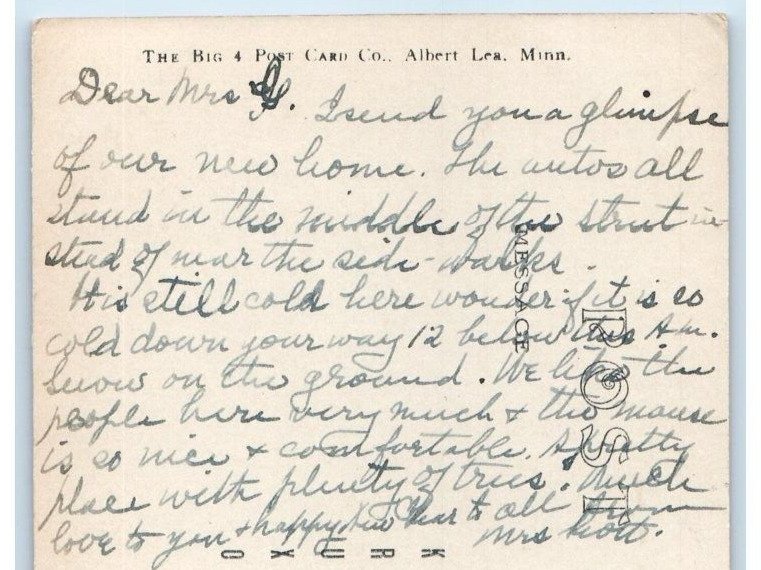 THE BIG 4 POST CARD CO., Albert Lea, Minn.
Dear Mrs G. I send you a glimpse
of our new home. The autos all
stand in the middle of the street in-
stead of near the side-walks.
It is still cold here wonder if it is so
cold down your way 12 below this A.m.
Snow on the ground. We like the
people here very much & the manse
is so nice & comfortable. A pretty
place with plenty of trees. Much
love to you & happy New Year to all from
Mrs
MESSAGE
POST
KRUXO